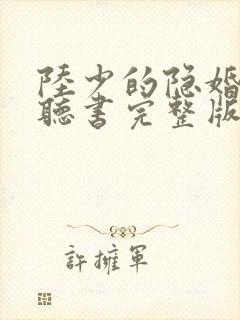 陸少的隐婚
聽書完整版
許擁軍